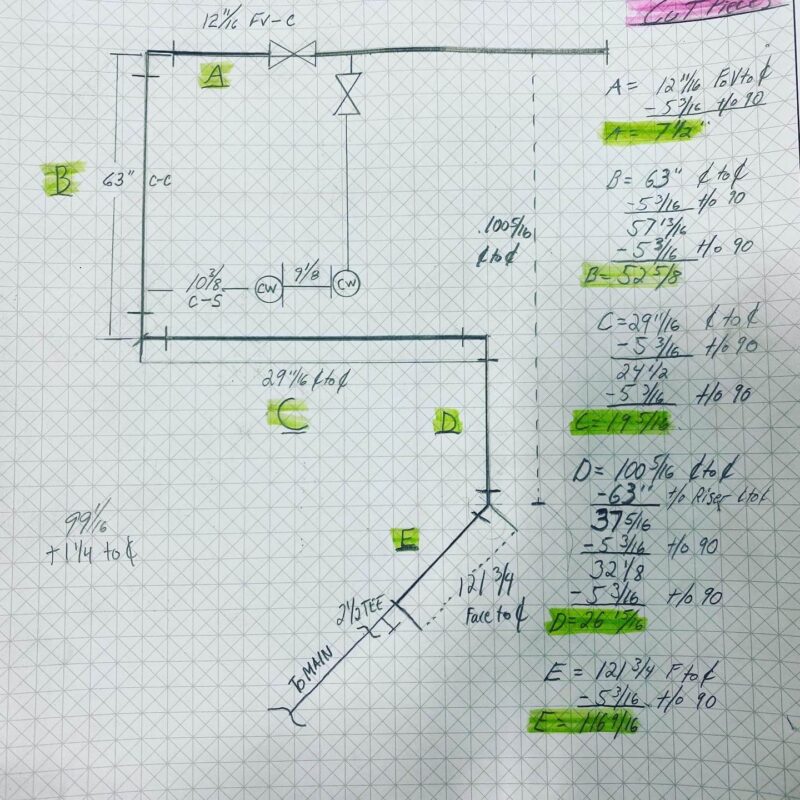 CUT PIECES
12 11/16 FV-C
A
B
63" C-C
10 3/8
C-S
CW
9 1/8
CW
100 5/16
¢ to ¢
29 11/16 ¢ to ¢
C
D
99 1/16
+1 1/4 to ¢
E
121 3/4
Face to ¢
2 1/2 TEE
To MAIN
A = 12 11/16 FoV to ¢
-5 3/16 t/o 90
A = 7 1/2"
B = 63" ¢ to ¢
-5 3/16 t/o 90
57 13/16
-5 3/16 t/o 90
B = 52 5/8
C = 29 11/16 ¢ to ¢
-5 3/16 t/o 90
24 1/2
-5 3/16 t/o 90
C = 19 5/16
D = 100 5/16 ¢ to ¢
-63" t/o Riser ¢ to ¢
37 5/16
-5 3/16 t/o 90
32 1/8
-5 3/16 t/o 90
D = 26 15/16
E = 121 3/4 F to ¢
-5 3/16 t/o 90
E = 116 9/16